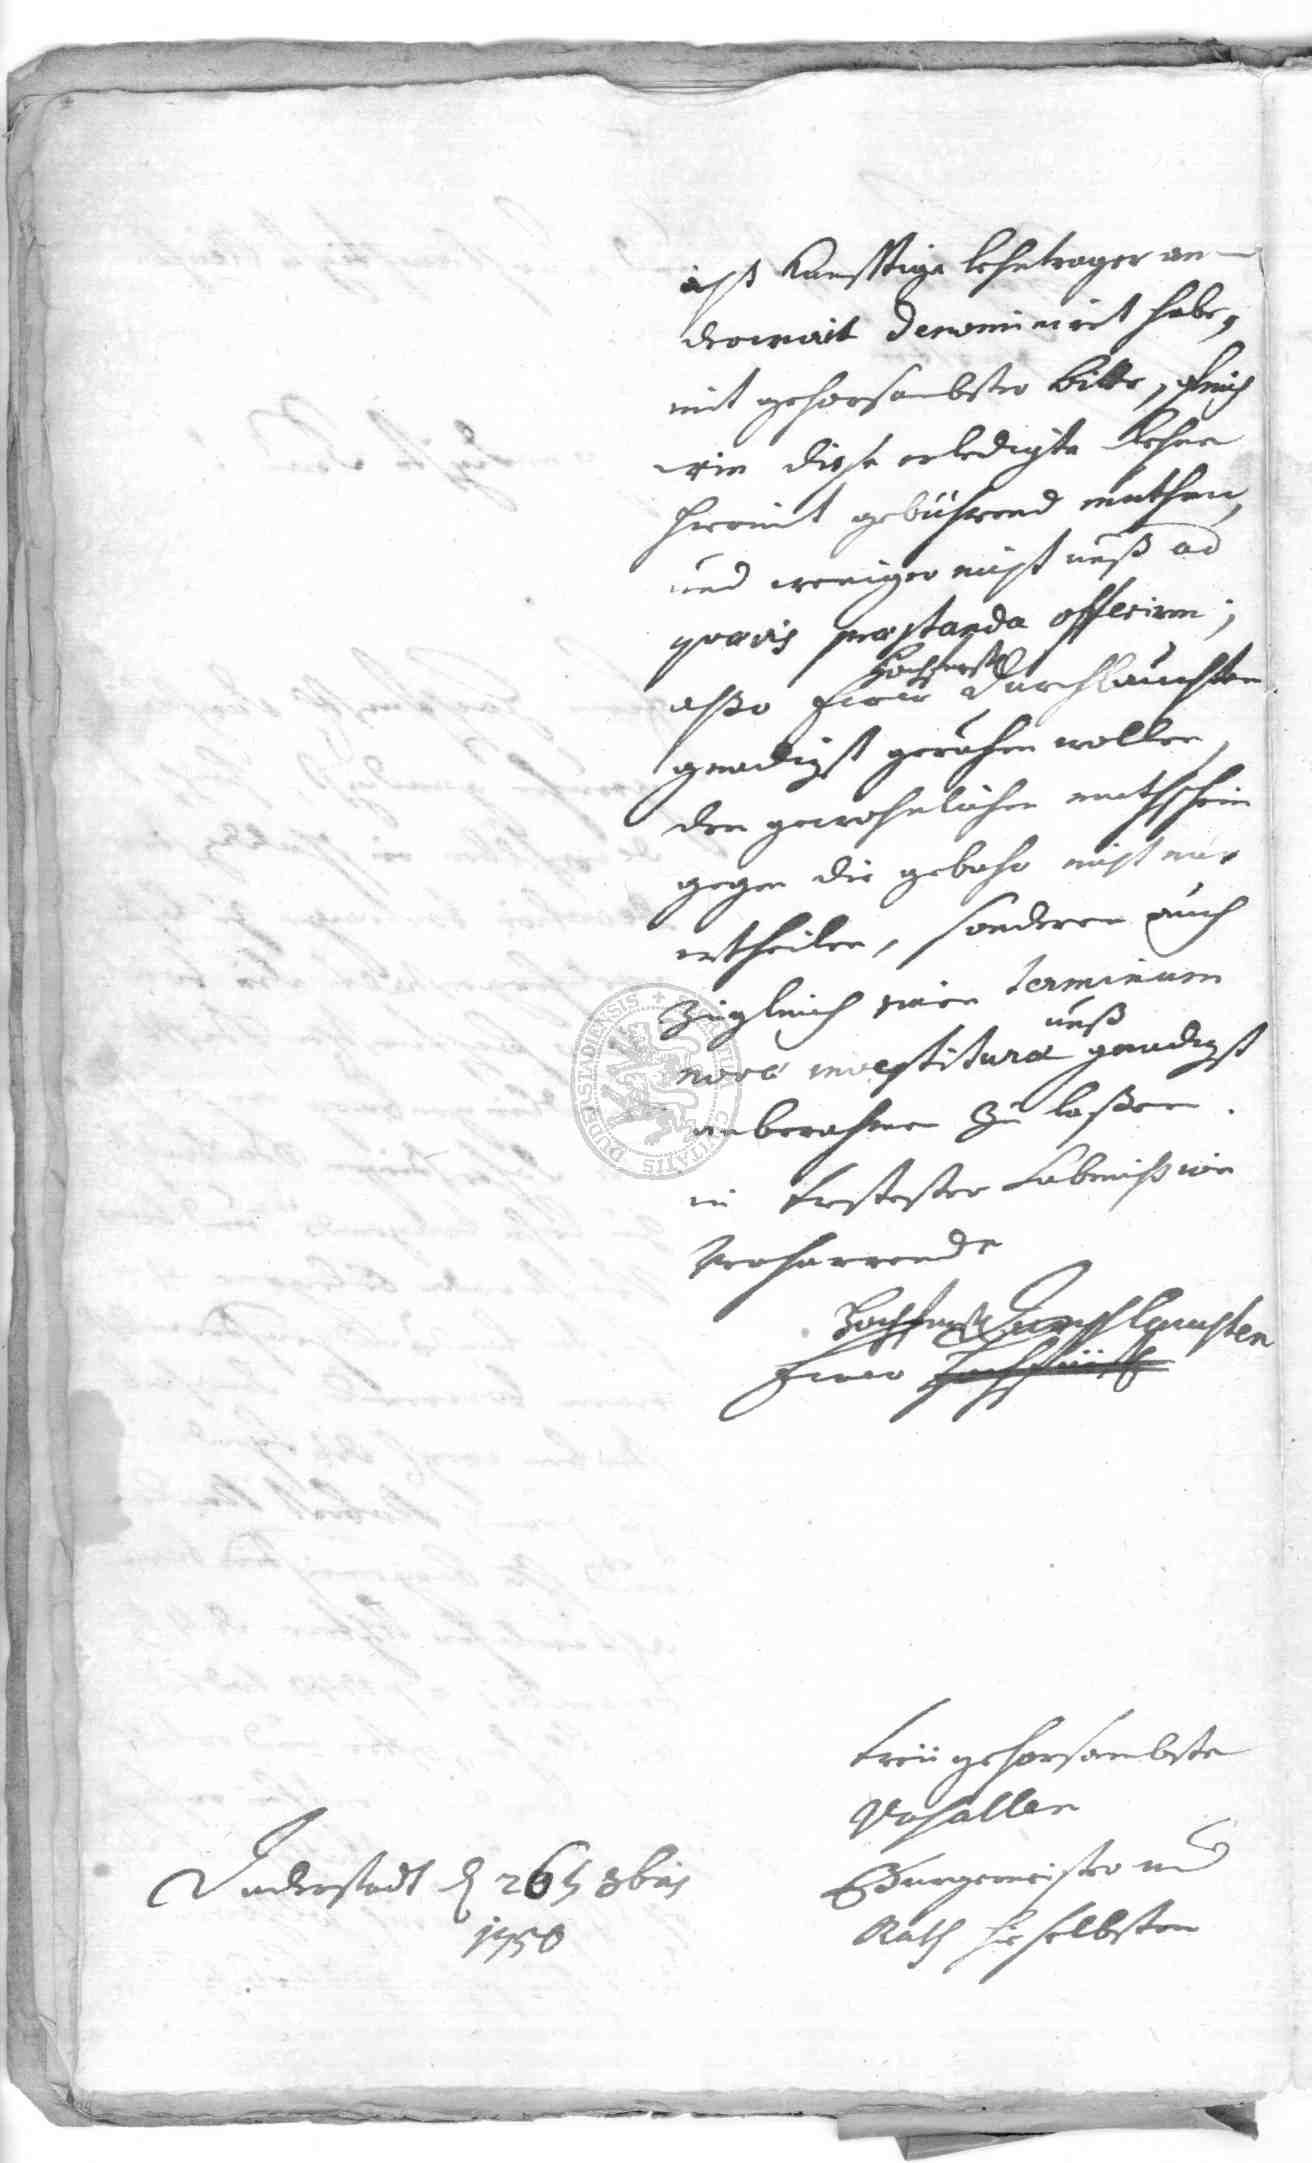 alß Künfftige lehntrager an-
derweit denominirt habe,
mit gehorsambster bitte, gleich
wir diese erledigte Lehne
hiermit gebührend muthen,
und weniger nicht unß ad
quaevis praestanda offeriren;
alßo Ewer Hochfürstl Durchlauchten
gnadigst geruhen wollen,
den gewohnlichen muthschein
gegen die gebühr nicht nur
ertheilen, sonderen auch
zugleich einen terminum
novae investiturae unß gnadigst
anberahmen zu laßen.
in
Verharrende
Hochfürstl Durchlauchten
Ewer
treu gehorsambste
Vasallen
Burgemeister und
Rath hieselbsten
Duderstadt d 26t 8bris
1750
SIGILLUM CIVITATIS DUDERSTADIENSIS